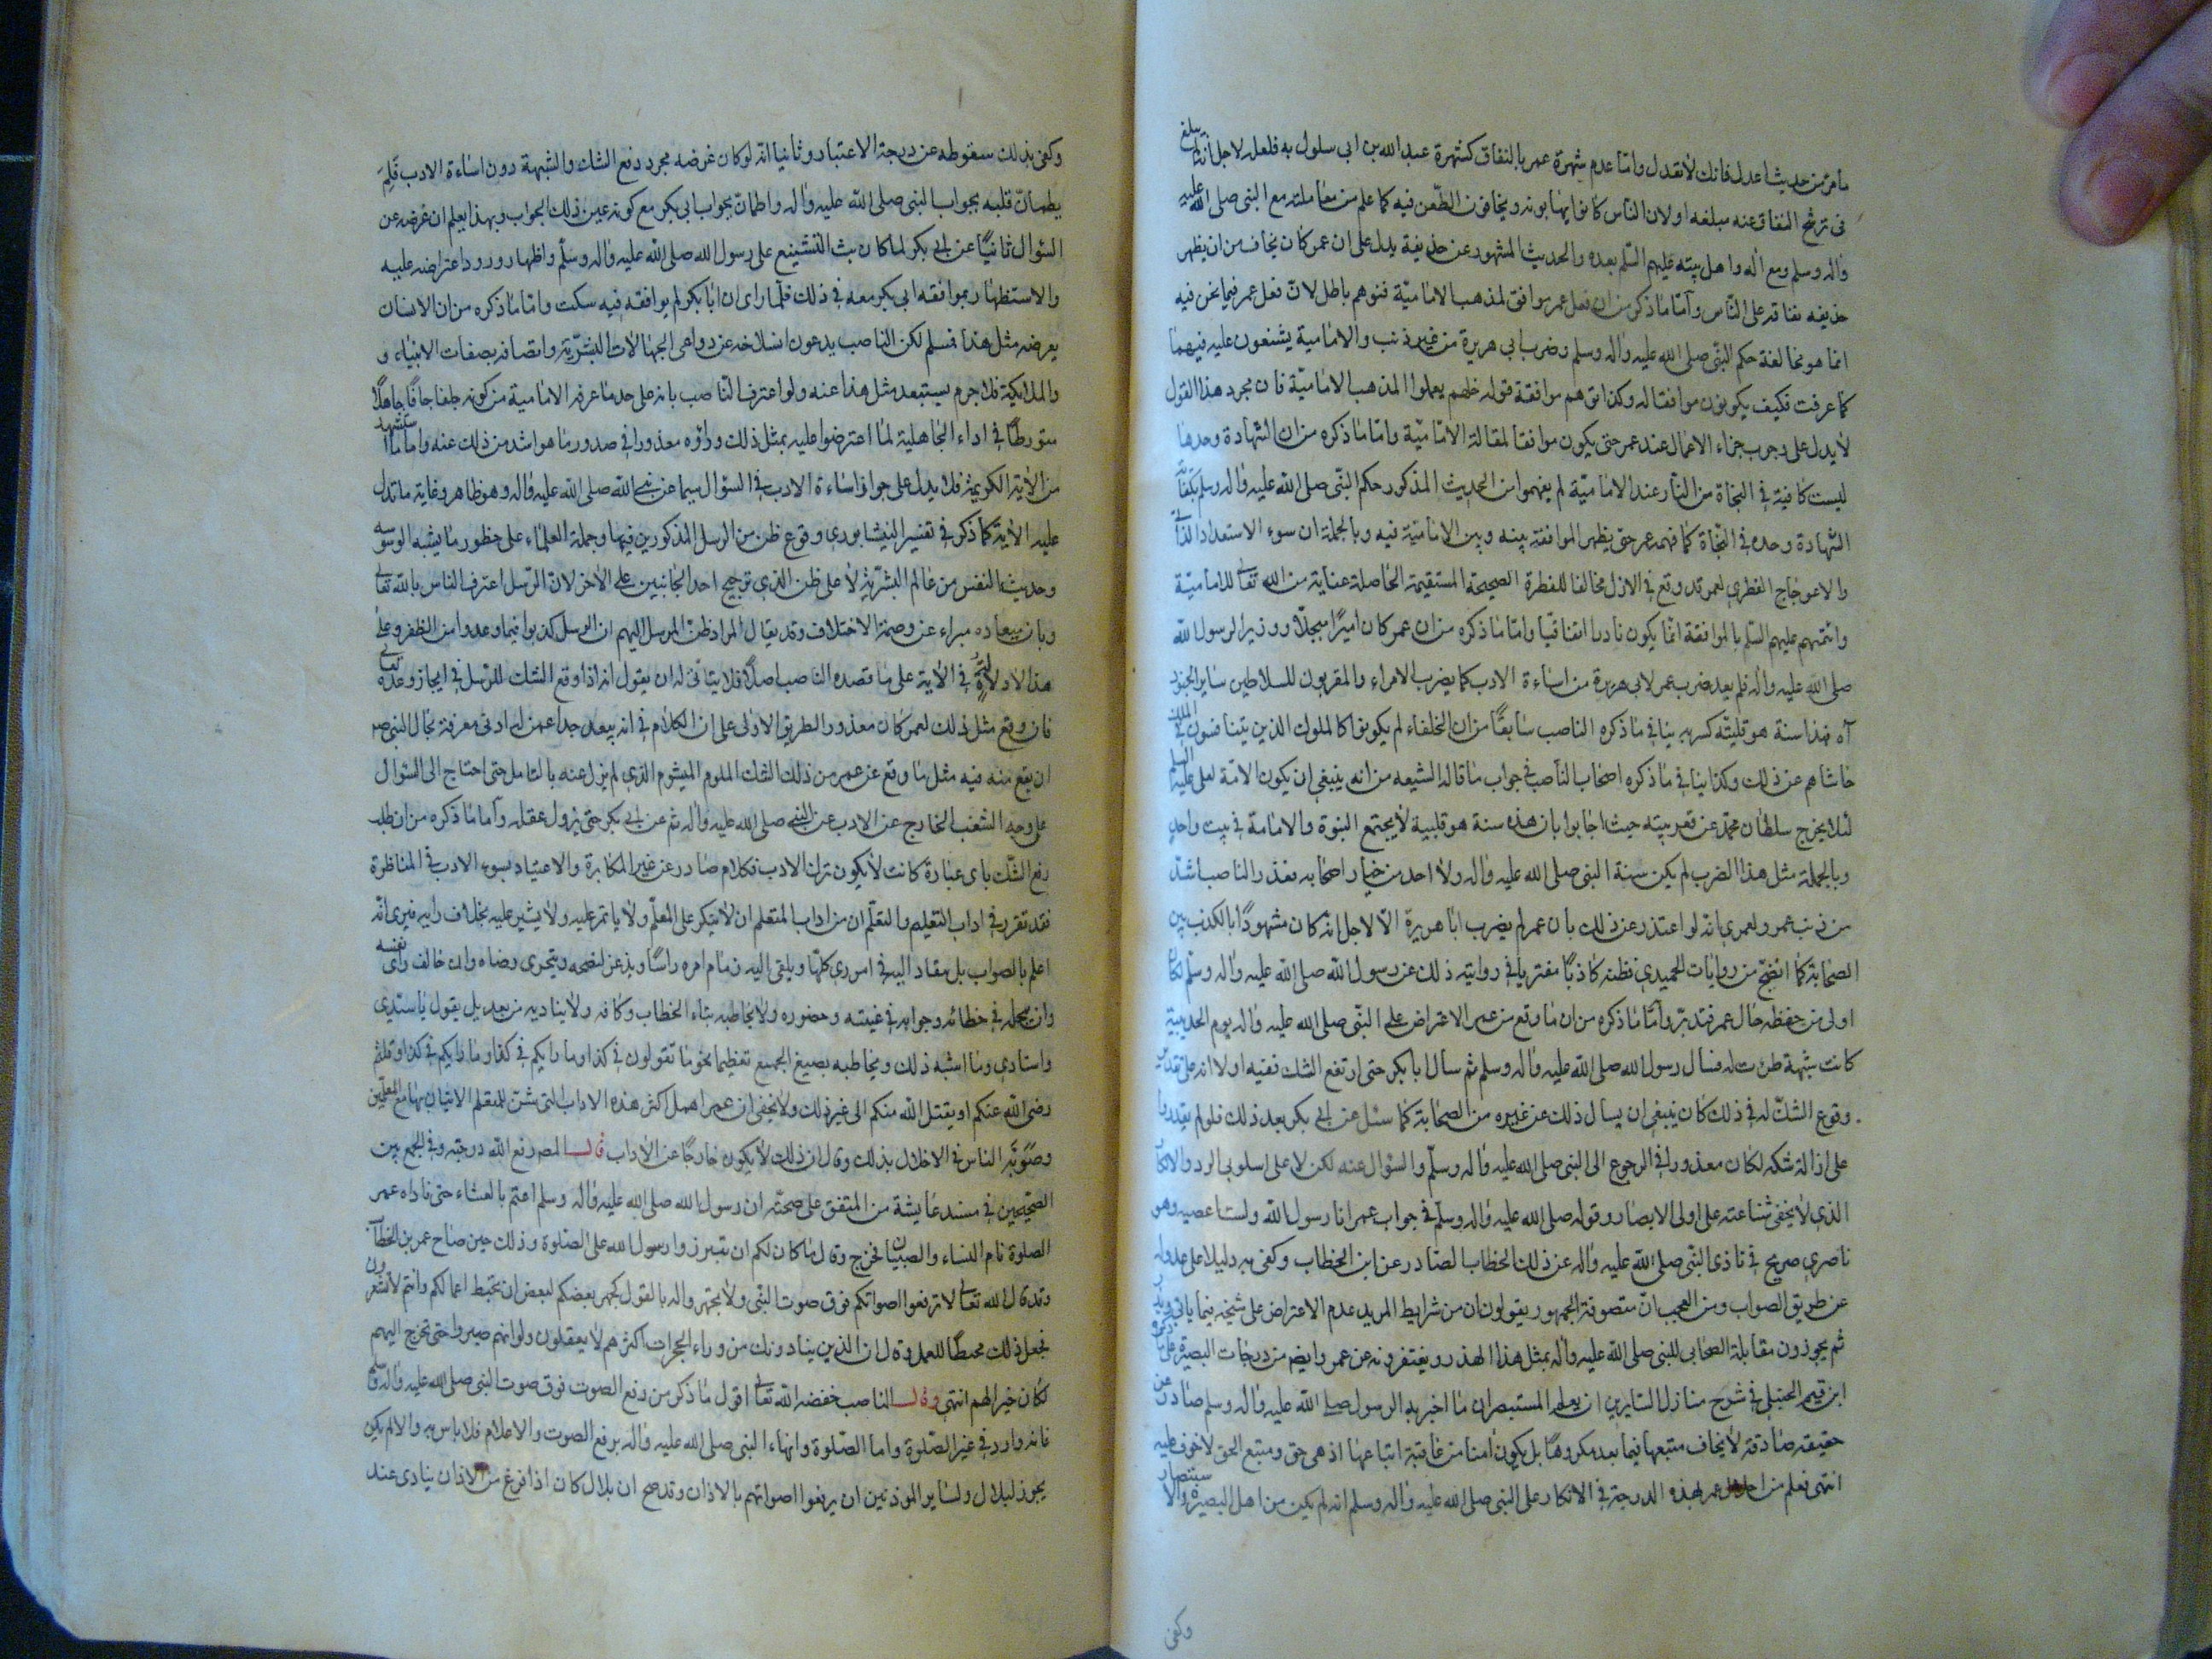 ما مر من حديث اعدل فانك لا تعدل واما عدم شهرة عمر بالنفاق كشهرة عبد الله بن ابى سلول به فلعله لاجل انه لم يبلغ
فى ترشح النفاق عنه مبلغه اولان الناس كانوا يهابونه ويخافون الطعن فيه كما علم من معاملته مع النبى صلى الله عليه
واله وسلم ومع اله واهل بيته عليهم السلم بعده والحديث المشهور عن حذيفة يدل على ان عمر كان يخاف من ان يظهر
حذيفه نفاقه على الناس وأما ما ذكر من ان فعل عمر موافق لمذهب الامامية فتوهم باطل لان فعل عمر فيما نحن فيه
انما هو مخالفة حكم النبى صلى الله عليه واله وسلم وضرب ابى هريرة من غير ذنب والامامية يشنعون عليه فيهما
كما عرفت فكيف يكونون موافقا له وكذا توهم موافقة قوله خلهم يعملوا المذهب الامامية فان مجرد هذا القول
لا يدل على وجوب جزاء الاعمال عند عمر حتى يكون موافقا لمقالة الامامية واما ما ذكره من ان الشهادة وحدها
ليست كافية فى النجاة من النار عند الامامية لم يفهموا من الحديث المذكور حكم النبى صلى الله عليه واله وسلم بكفاية
الشهادة وحده فى النجاة كما فهمه عمر حتى يظهر الموافقة بينه وبين الامامية فيه وبالجملة ان سوء الاستعداد الذاتى
والاعوجاج الفطرى لعمر قد وقع فى الازل مخالفا للفطرة الصحيحة المستقيمة الحاصلة عناية من الله تعالى للامامية
وائمتهم عليهم السلم بالموافقة انما يكون نادرا اتفاقيا واما ما ذكره من ان عمر كان اميرا مبجلا ووزيرا لرسول الله
صلى الله عليه واله فلم يبعد ضرب عمر لابى هريرة من اساءة الادب كما يضرب الامراء والمقربون للسلاطين ساير الجنود
آه فهذا سنة هرقلية كسروية ينافى ما ذكره الناصب سابقا من ان الخلفاء لم يكونوا كالملوك الذين يتنافسون فى الملك
حاشاهم عن ذلك وكذا ينافى ما ذكره اصحاب الناصب فى جواب ما قاله الشيعه من انه ينبغى ان يكون الامة لعلى عليه السلم
لئلا يخرج سلطان محمد عن قعر بيته حيث اجابوا بان هذه سنة هرقلية لا يجتمع النبوة والامامة فى بيت واحد
وبالجملة مثل هذا الضرب لم يكن سنة النبى صلى الله عليه واله ولا احد من خيار اصحابه فعذر الناصب اشد
من ذنب عمر ولعمرى انه لو اعتذر عن ذلك بان عمر لم يضرب ابا هريرة الا لاجل انه كان مشهودا بالكذب بين
الصحابة كما اتضح من روايات الحميدى فظنه كاذبا مفتريا فى روايته ذلك عن رسول الله صلى الله عليه واله وسلم لكان
اولى من حفظه حال عمر فتدبر وأما ما ذكره من ان ما وقع من عمر الاعتراض على النبى صلى الله عليه واله يوم الحديبية
كانت شبهة طرئت له فسأل رسول الله صلى الله عليه واله وسلم ثم سال ابا بكر حتى ارتفع الشك ففيه اولا انه على تقدير
وقوع الشك له فى ذلك كان ينبغى ان يسال ذلك عن غيره من الصحابة كما سئل عن ابى بكر بعد ذلك فلو لم يقدروا
على ازالة شكه لكان معذورا فى الرجوع الى النبى صلى الله عليه واله وسلم والسؤال عنه لكن لا على اسلوب الرد والانكار
الذى لا يخفى شناعته على اولى الابصار وقوله صلى الله عليه واله وسلم فى جواب عمر انا رسول الله ولست اعصيه وهو
ناصرى صريح فى تاذى النبى صلى الله عليه واله عن ذلك الخطاب الصادر عن ابن الخطاب وكفى به دليلا على عدوله
عن طريق الصواب ومن العجب ان متصوفة الجمهور يقولون ان من شرايط المريد عدم الاعتراض على شيخه فيما ياتى ويذر
ثم يجوزون مقابلة الصحابى للنبى صلى الله عليه واله بمثل هذا الهذر ويغتفرونه عن عمر وايضم من درجات البصيرة على ما ذكره
ابن قيم الحنبلى فى شرح منازل السايرين ان يعلم المستبصر ان ما اخبر به الرسول صلى الله عليه واله وسلم صادر عن
حقيقة صادقة لا يخاف متبعها فيما بعد مكروها بل يكون امنا من عاقبة اتباعها اذ هى حق ومتبع الحق لا خوف عليه
انتهى فعلم من اخلال عمر لهذه الدرجة فى الانكار على النبى صلى الله عليه واله وسلم انه لم يكن من اهل البصيرة والاستبصار
وكفى
وكفى بذلك سقوطه عن درجة الاعتبار وثانيا انه لو كان غرضه مجرد دفع الشك والشبهة دون اساءة الادب فلم
يطمأن قلبه بجواب النبى صلى الله عليه واله واطمان بجواب ابى بكر مع كونه عين ذلك الجواب وبهذا يعلم ان غرضه عن
السؤال ثانيا عن ابى بكر لما كان بث التشنيع على رسول الله صلى الله عليه واله وسلم واظهار ورود اعتراضه عليه
والاستظهار بموافقة ابى بكر معه فى ذلك فلما راى ان ابا بكر لم يوافقه فيه سكت واما ما ذكره من ان الانسان
يعرضه مثل هذا فمسلم لكن الناصب يدعون انسلاخه عن دواعى الجهالات البشرية واتصافه بصفات الانبياء و
والملائكية فلا جرم يستبعد مثل هذا عنه ولو اعترف الناصب بانه على حد ما عرفه الامامية من كونه جلفا جافا جاهلا
متورطا فى اداء الجاهلية لما اعترضوا عليه بمثل ذلك وراوه معذورا فى صدور ما هو اشد من ذلك عنه واما ما استشهد
من الاية الكريمة فلا يدل على جواز اساءة الادب فى السؤال سيما عن نبى الله صلى الله عليه واله وهو ظاهر وغاية ما تدل
عليه الاية كما ذكر فى تفسير النيشابورى وقوع ظن من الرسل المذكورين فيها وجملة العلماء على خطور ما يشبه الوسوسه
وحديث النفس من عالم البشرية لا على ظن الذى ترجيح احد الجانبين على الاخر لان الرسل اعترف الناس بالله تعالى
وبان ميعاده مبراء عن وصمة الاختلاف وقد يقال المراد ظن المرسل اليهم ان الرسل كذبوا فيما وعدوا من الظفر وعلى
هذا لا دلالة فى الاية على ما قصده الناصب اصلا فلا يتاتى له ان يقول انه اذا وقع الشك للرسل فى ايجاز وعده تعالى
فان وقع مثل ذلك لعمر كان معذورا بطريق الاولى على ان الكلام فى انه يبعد جدا عمن له ادنى معرفة بحال النبى صم
ان يقع منه فيه مثل ما وقع عن عمر من ذلك الشك الملوم الميشوم الذى لم يزل عنه بالتامل حتى احتاج الى السؤال
على وجه الشغب الخارج عن الادب عن النبى صلى الله عليه واله ثم عن ابى بكر حتى يزول عقله وأما ما ذكره من ان طلب
رفع الشك باى عبارة كانت لا يكون ترك الادب فكلام صادر عن غير المكابرة والاعتياد بسوء الادب فى المناظرة
فقد تقرر فى اداب التعليم والتعلم ان من اداب المتعلم ان لا يتكبر على المعلم ولا يأتمر عليه ولا يشير عليه بخلاف رايه فيرى انه
اعلم بالصواب بل ينقاد اليه فى اموره كلها ويلقى اليه زمام امره راسا ويذعن لنصحه ويتحرى رضاه وان خالف راى نفسه
وان يبجله فى خطابه وجوابه فى غيبته وحضوره ولا يخاطبه بتاء الخطاب وكافه ولا يناديه من بعد بل يقول يا سيدى
واستادى وما اشبه ذلك ويخاطبه بصيغ الجمع تعظيما نحو ما تقولون فى كذا وما رايكم فى كذا وما رايكم فى كذا وقلتم
رضى الله عنكم او يقتبل الله منكم الى غير ذلك ولا يخفى ان عمر اهمل اكثر هذه الاداب التى تسن للمتعلم الاتيان بها مع المعلمين
وصوبه الناس فى الاخلال بذلك وقال ان ذلك لا يكون خارجا عن الاداب قال المصر رفع الله درجته وفى الجمع بين
الصحيحين فى مسند عايشة من المتفق على صحته ان رسول الله صلى الله عليه واله وسلم اعتم بالعشاء حتى ناداه عمر
الصلوة نام النساء والصبيان فخرج وقال ما كان لكم ان تبرزوا رسول الله على الصلوة وذلك حين صاح عمر بن الخطاب
وقد قال الله تعالى لا ترفعوا اصواتكم فوق صوت النبى ولا تجهروا له بالقول كجهر بعضكم لبعض ان تحبط اعمالكم وانتم لا تشعرون
فجعل ذلك محبطا للعمل وقال ان الذين ينادونك من وراء الحجرات اكثرهم لا يعقلون ولو انهم صبروا حتى تخرج اليهم
لكان خيرا لهم انتهى وقال الناصب خفضه الله تعالى اقول ما ذكر من رفع الصوت فوق صوت النبى صلى الله عليه واله وسلم
فانه وارد فى غير الصلوة واما الصلوة وانهاء النبى صلى الله عليه واله برفع الصوت والاعلام فلا باس به والا لم يكن
يجوز لبلال ولساير الموذنين ان يرفعوا اصواتهم بالاذان وقد صح ان بلال كان اذا فرغ من الاذان ينادى عند